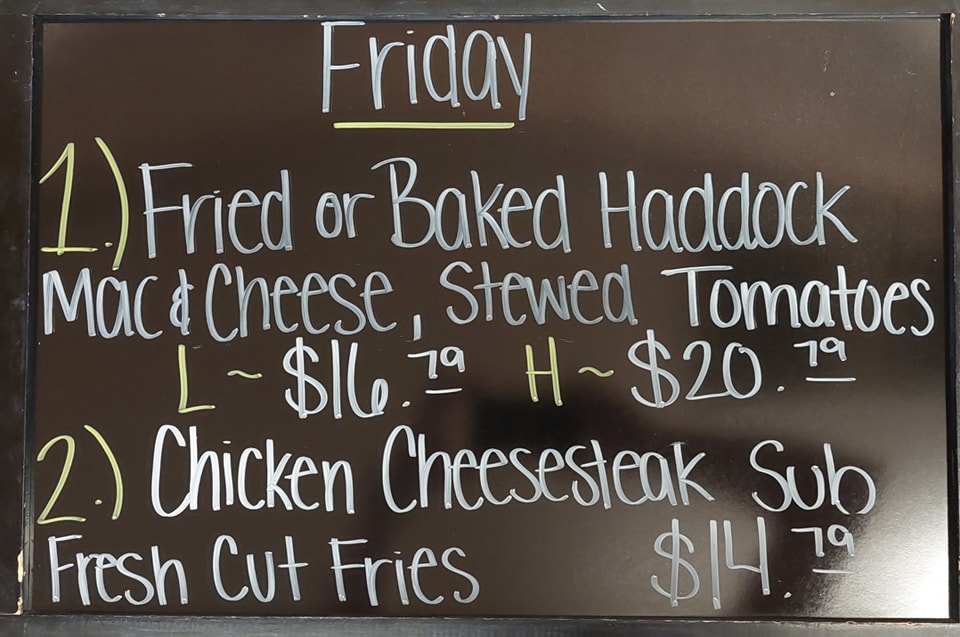 Friday
1.) Fried or Baked Haddock
Mac & Cheese, Stewed Tomatoes
L ~ $16.79 H ~ $20.79
2.) Chicken Cheesesteak Sub
Fresh Cut Fries $14.79